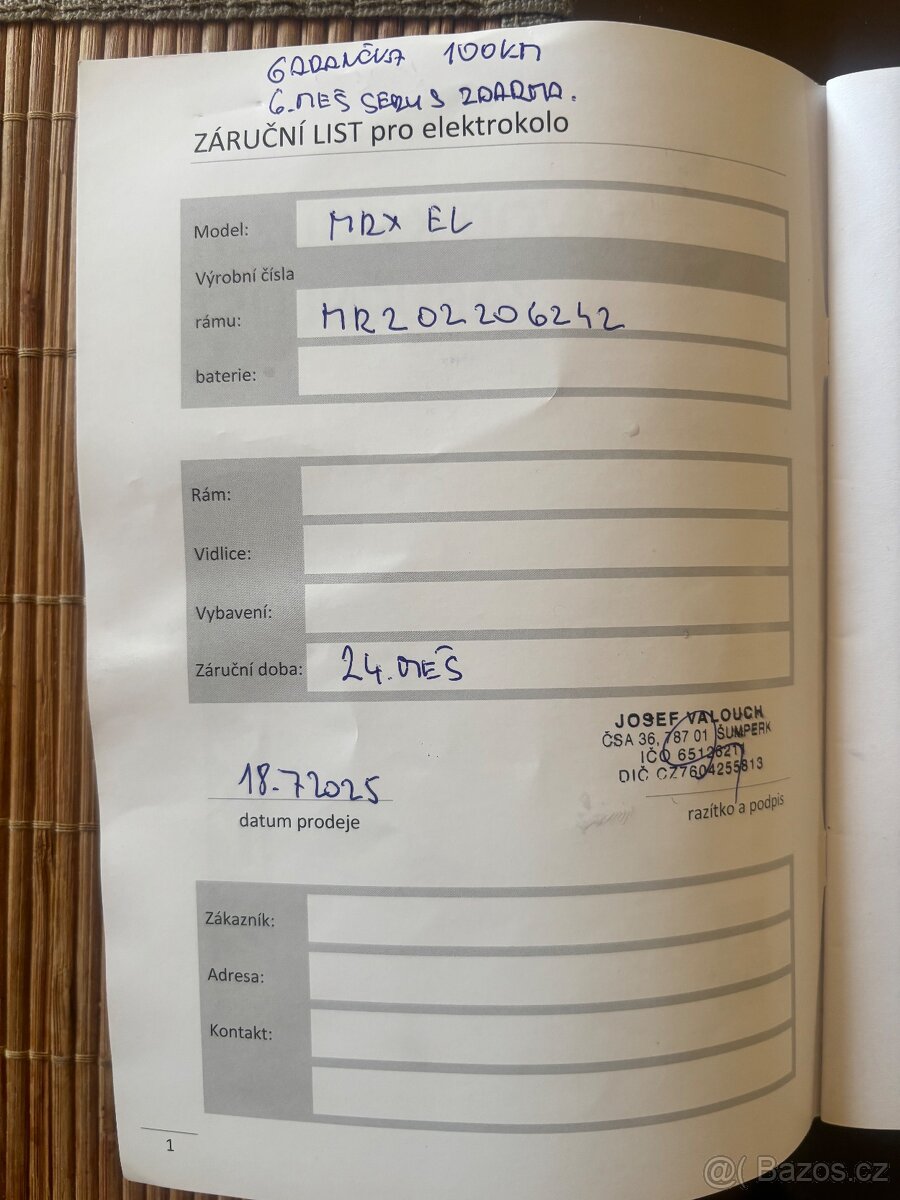 GARANČKA 100KM
6.MĚS SERVIS ZDARMA.
ZÁRUČNÍ LIST pro elektrokolo
Model: MRX EL
Výrobní čísla
rámu: MR202206242
baterie:
Rám:
Vidlice:
Vybavení:
Záruční doba: 24.MĚS
JOSEF VALOUCH
ČSA 36, 787 01 ŠUMPERK
IČO
DIČ CZ7604255813
18.7 2025
datum prodeje
razítko a podpis
Zákazník:
Adresa:
Kontakt:
1
@( Bazos.cz